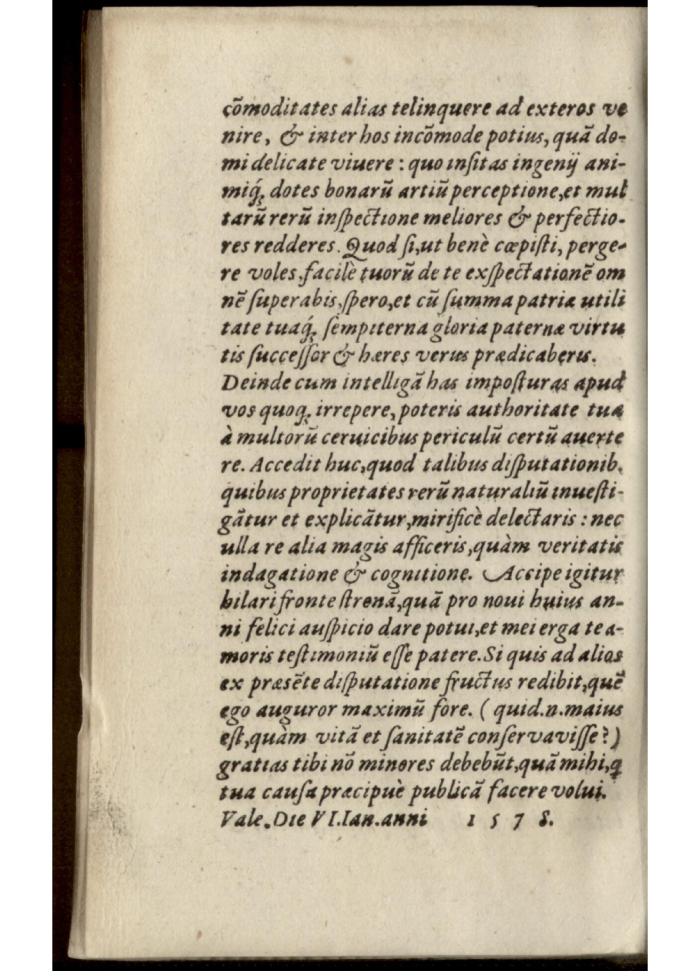 cõmoditates alias telinquere ad exteros ve
nire, & inter hos incõmode potius, quã do-
mi delicate viuere: quo insitas ingenij ani-
miq́; dotes bonarũ artiũ perceptione, et mul
tarũ rerũ inspectione meliores & perfectio-
res redderes. Quod si, ut benè cœpisti, perge-
re voles, facilè tuorũ de te exspectationẽ om
nẽ superabis, spero, et cũ summa patriæ utili
tate tuaq́; sempiterna gloria paternæ virtu
tis successor & hæres verus prædicaberis.
Deinde cum intelligã has imposturas apud
vos quoq; irrepere, poteris authoritate tua
à multorũ ceruicibus periculũ certũ auerte
re. Accedit huc, quod talibus disputationib.
quibus proprietates rerũ naturaliũ inuesti-
gãtur et explicãtur, mirificè delectaris: nec
ulla re alia magis afficeris, quàm veritatis
indagatione & cognitione. Accipe igitur
hilari fronte strenã, quã pro noui huius an-
ni felici auspicio dare potui, et mei erga te a-
moris testimoniũ esse patere. Si quis ad alios
ex præsẽte disputatione fructus redibit, quẽ
ego auguror maximũ fore. (quid.n.maius
est, quàm vitã et sanitatẽ conservavisse?)
gratias tibi nõ minores debebũt, quã mihi, q̃
tua causa præcipuè publicã facere volui.
Vale. Die VI. Ian. anni 1578.